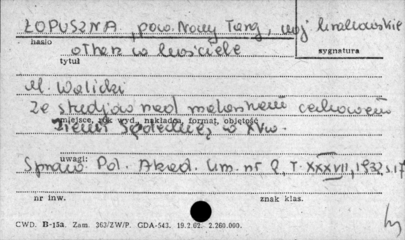 ŁOPUSZNA, pow. Nowy Targ, woj krakowskie
hasło
ołtarz w kościele
sygnatura
tytuł
M. Walicki
Ze studjów nad malarstwem cechowem
miejsce, rok wyd., nakładca, format, objętość
Ziemi Sądeckiej w XVw.
uwagi:
Spraw. Pol. Akad. Um. nr 2, T. XXXVII, 1932, s. 17
nr inw.
znak klas.
CWD. B-15a. Zam. 363/ZW/P. GDA-543. 19.2.62. 2.260.000.